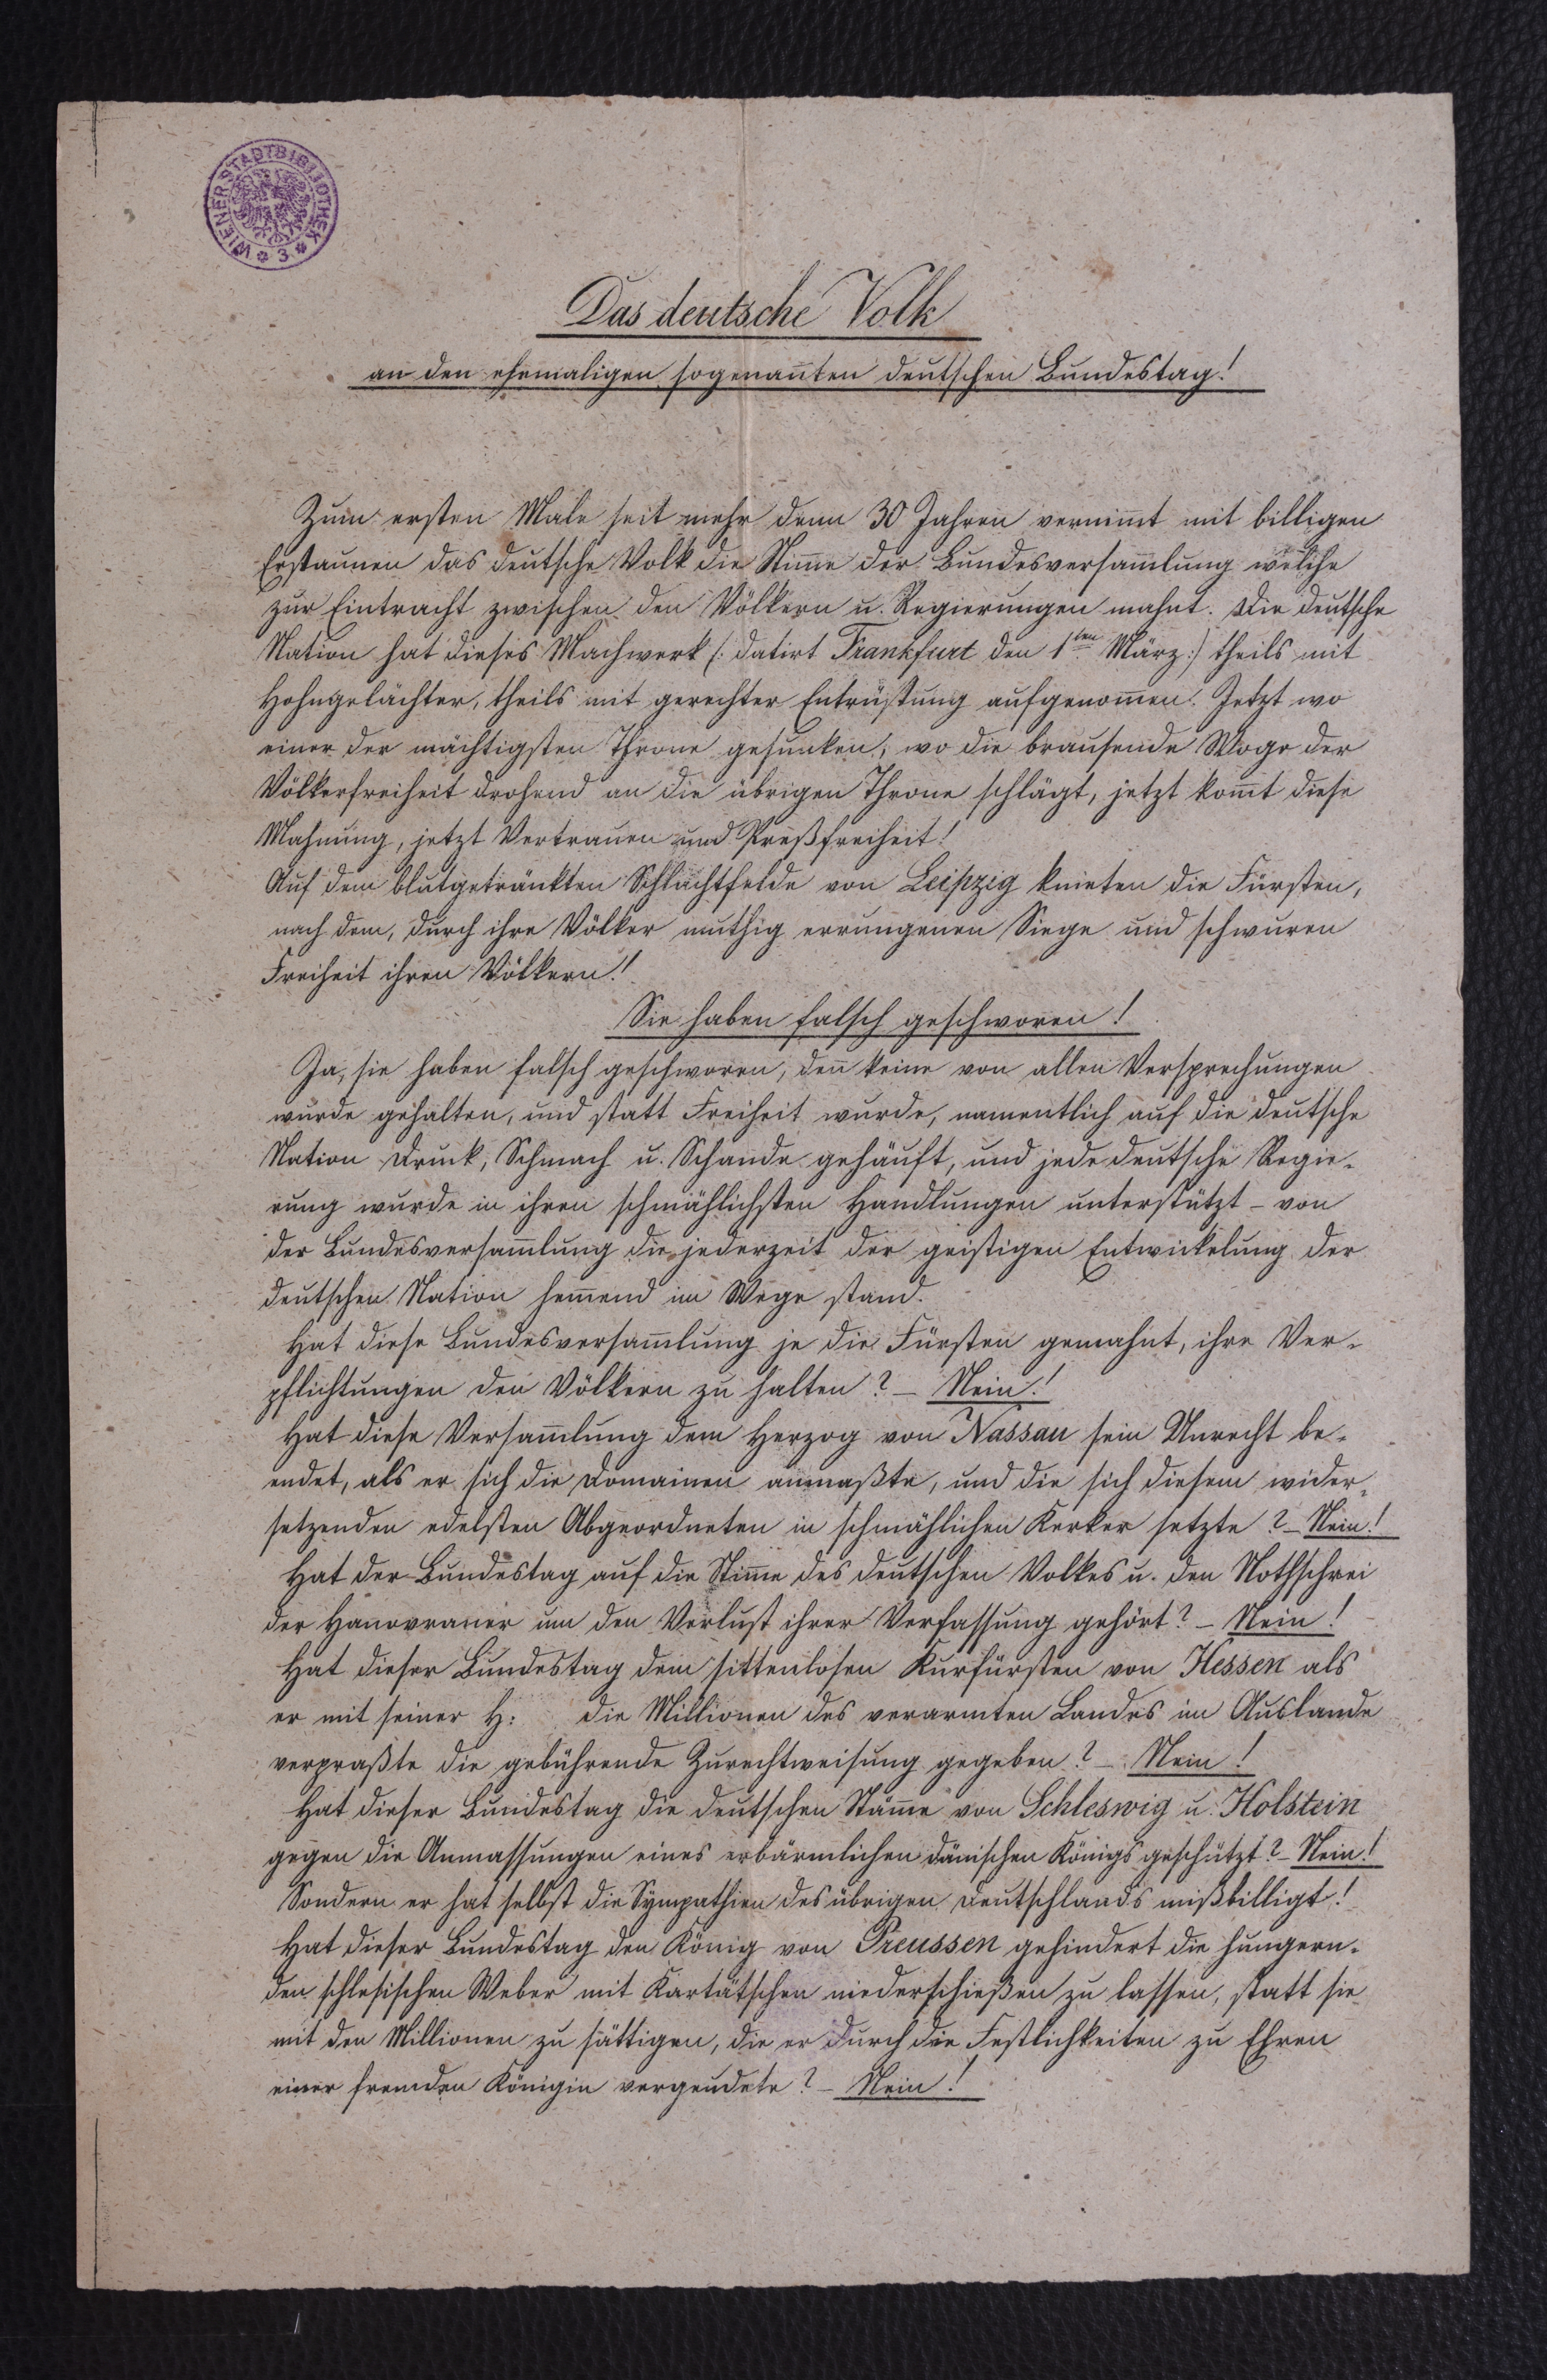 WIENER STADTBIBLIOTHEK
* 3 *
Das deutsche Volk
an den ehemaligen sogenan̄ten deutschen Bundestag!
Zum ersten Male seit mehr denn 30 Jahren vernim̄t mit billigen
Erstaunen das deutsche Volk die Stim̄e der Bundesversam̄lung welche
zur Eintracht zwischen den Völkern u. Regierungen mahnt. Die deutsche
Nation hat dieses Machwerk (: datirt Frankfurt den 1ten März:) theils mit
Hohngelächter, theils mit gerechter Entrüstung aufgenom̄en. Jetzt wo
einer der mächtigsten Throne gesunken, wo die brausende Woge der
Völkerfreiheit drohend an die übrigen Throne schlägt, jetzt kom̄t diese
Mahnung, jetzt Vertrauen und Preßfreiheit!
Auf dem blutgetränkten Schlachtfelde von Leipzig knieten die Fürsten,
nach dem, durch ihre Völker muthig errungenen Siege und schwuren
Freiheit ihren Völkern!
Sie haben falsch geschworen!
Ja, sie haben falsch geschworen, den̄ keine von allen Versprechungen
wurde gehalten, und statt Freiheit wurde, namentlich auf die deutsche
Nation Druck, Schmach u. Schande gehäuft, und jede deutsche Regie-
rung wurde in ihren schmählichsten Handlungen unterstützt – von
der Bundesversam̄lung die jederzeit der geistigen Entwickelung der
deutschen Nation hem̄end im Wege stand.
Hat diese Bundesversam̄lung je die Fürsten gemahnt, ihre Ver-
pflichtungen den Völkern zu halten? – Nein!
Hat diese Versam̄lung dem Herzog von Nassau sein Unrecht be-
endet, als er sich die Domainen anmaßte, und die sich diesem wider-
setzenden edelsten Abgeordneten in schmählichen Kerker setzte? – Nein!
Hat der Bundestag auf die Stim̄e des deutschen Volkes u. den Nothschrei
der Hanovraner um den Verlust ihrer Verfassung gehört? – Nein!
Hat dieser Bundestag dem sittenlosen Kurfürsten von Hessen als
er mit seiner H: die Millionen des verarmten Landes im Auslande
verpraßte die gebührende Zurechtweisung gegeben? – Nein!
Hat dieser Bundestag die deutschen Stäm̄e von Schleswig u. Holstein
gegen die Anmassungen eines erbärmlichen dänischen Königs geschützt? – Nein!
Sondern er hat selbst die Sympathien des übrigen Deutschlands mißbilligt!
Hat dieser Bundestag den König von Preussen gehindert die hungern-
den schlesischen Weber mit Kartätschen niederschießen zu lassen, statt sie
mit den Millionen zu sättigen, die er durch die Festlichkeiten zu Ehren
einer fremden Königin vergeudete? – Nein!